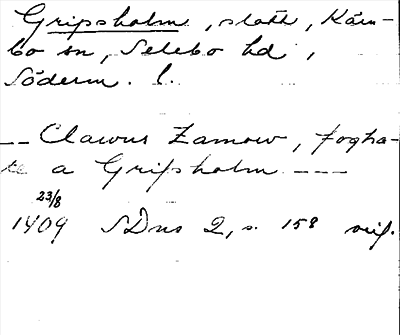 Gripsholm, slott, Kärn-
bo sn, Selebo hd,
Söderm. l.
-- Clawus Zamow, fogha-
te a Gripsholm ---
23/8
1409 SDns 2, s. 158 orig.